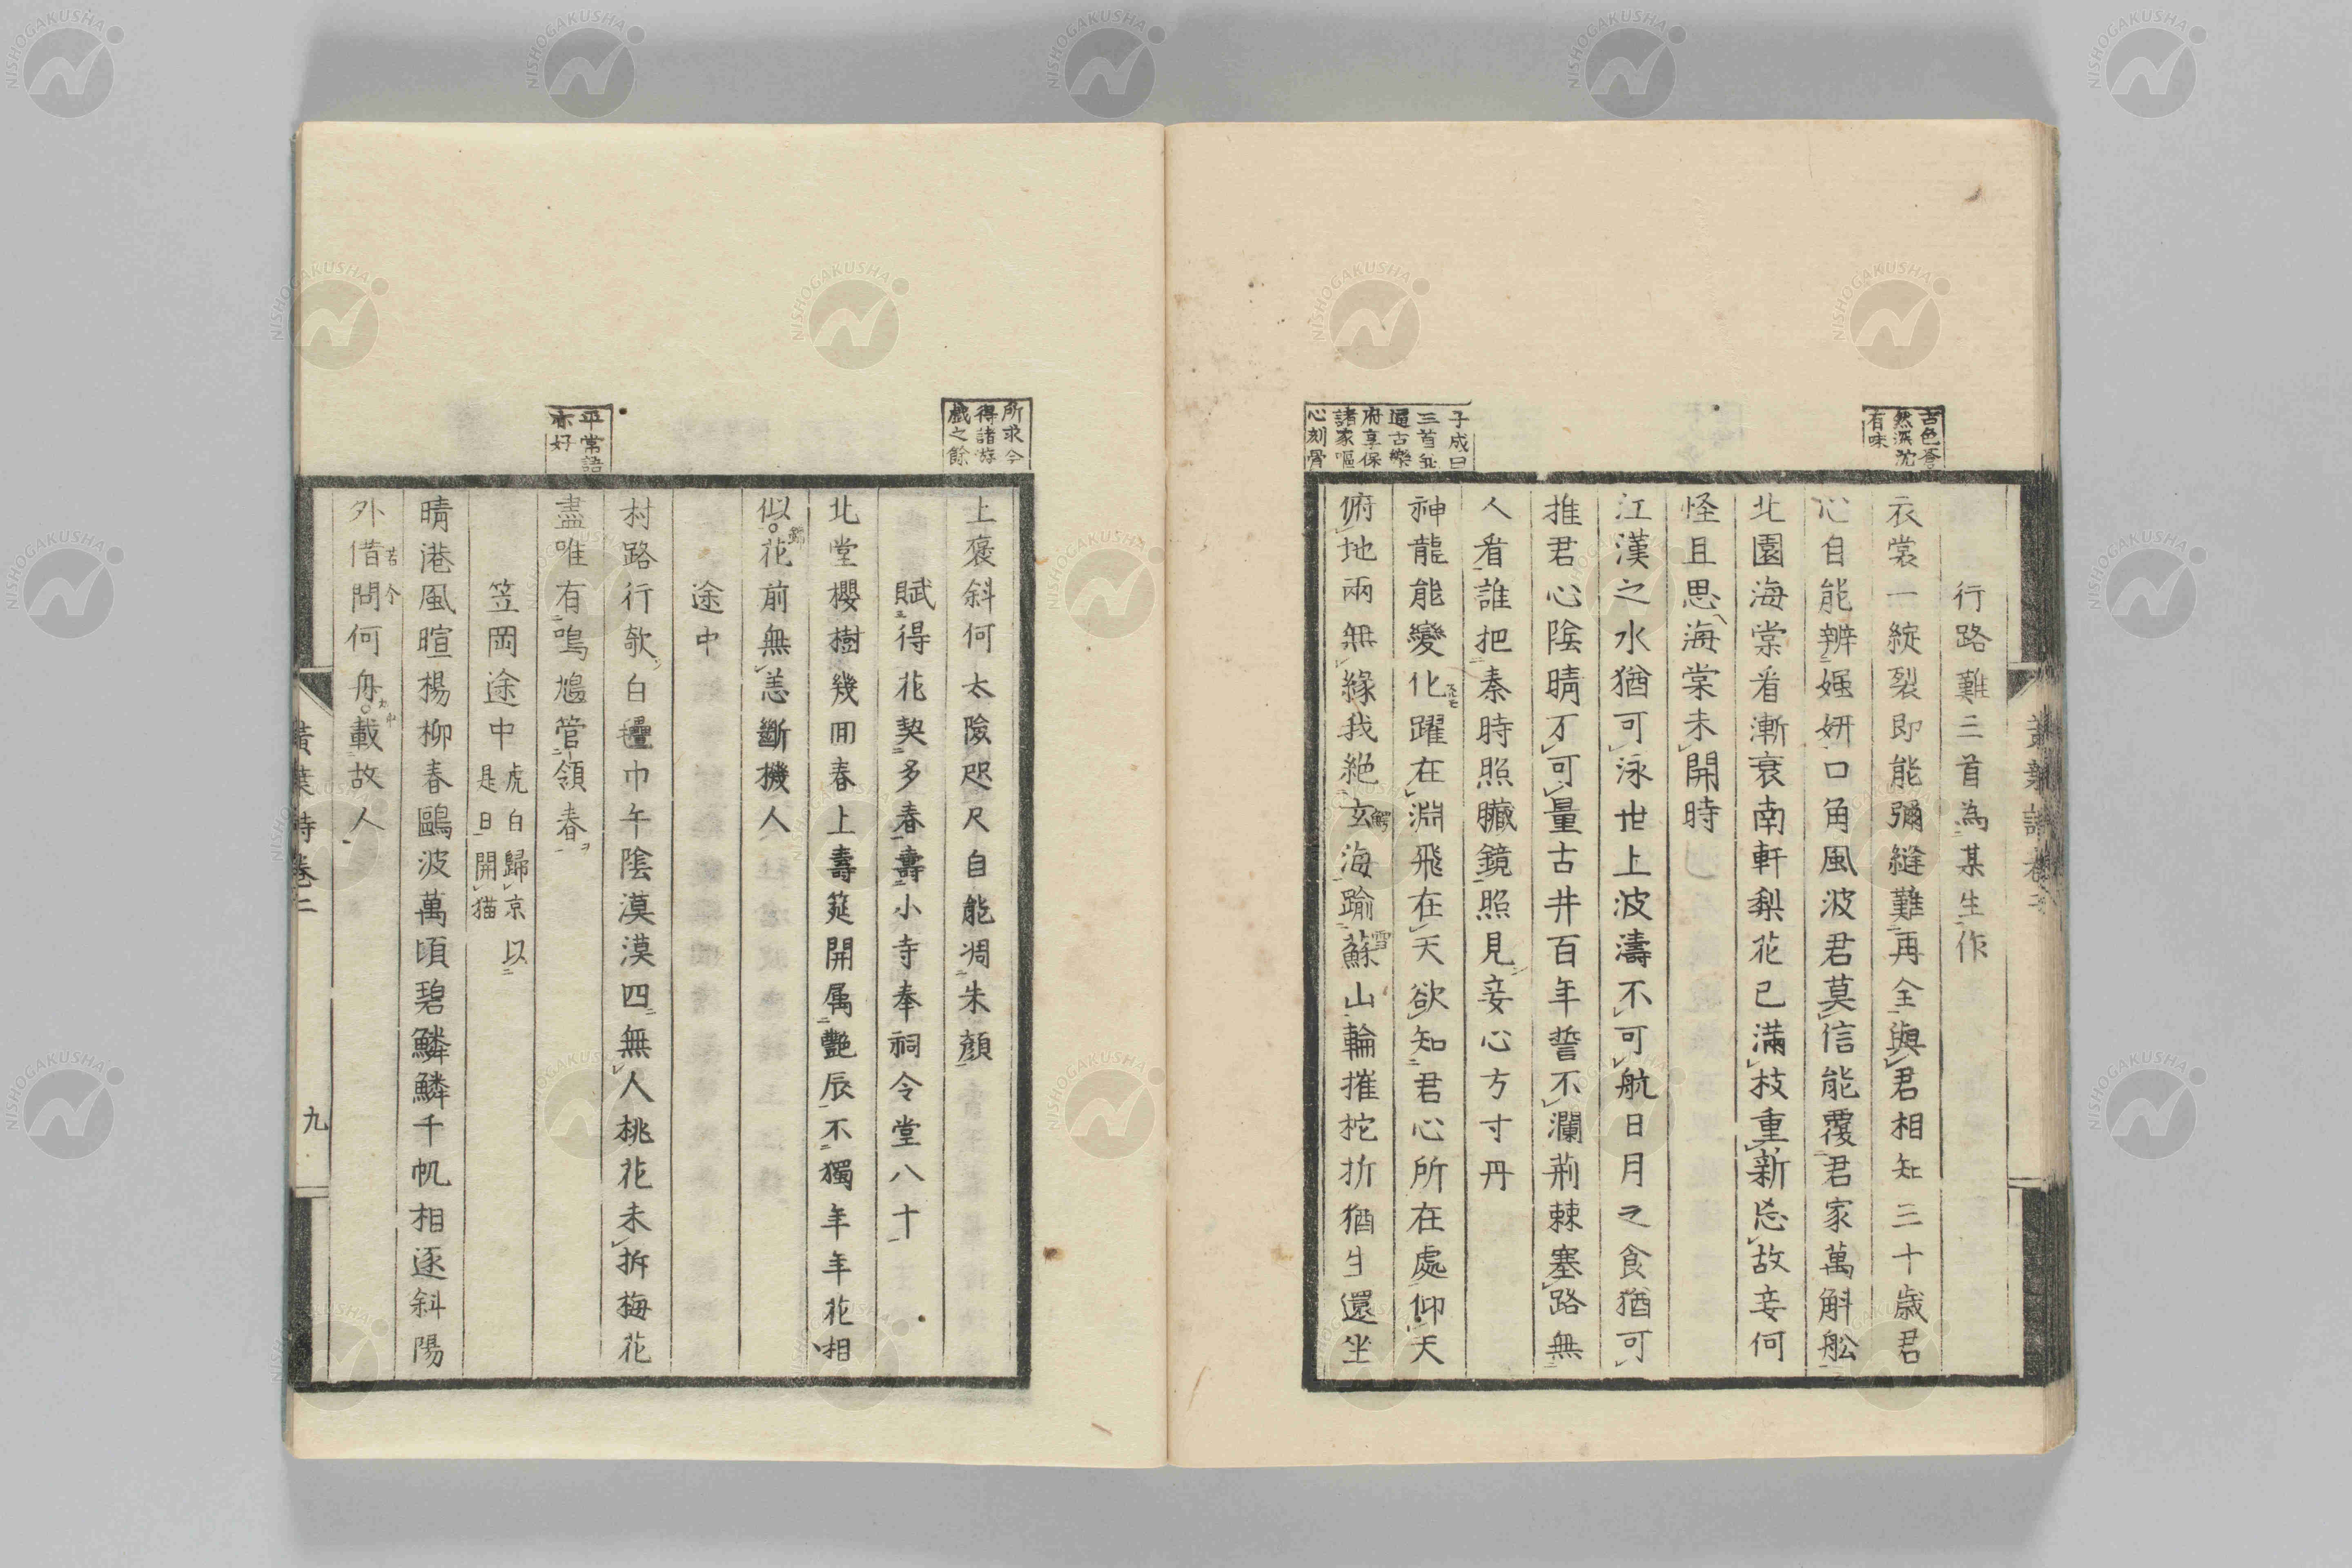 行路難三首為某生作
衣裳一綻裂即能彌縫難再全與君相知三十歲君
心自能辨媸妍口角風波君莫信能覆君家萬斛舩
北園海棠看漸衰南軒梨花已滿枝重新忘故妾何
怪且思海棠未開時
江漢之水猶可泳世上波濤不可航日月之食猶可
推君心陰晴不可量古井百年誓不瀾荊棘塞路無
人看誰把秦時照臟鏡照見妾心方寸丹
神龍能變化躍在淵飛在天欲知君心所在處仰天
俯地兩無緣我絕玄海踰蘇山輪摧柁折猶生還坐
古色蒼
然深沈
有味
子成曰
三首
逼古樂
府享保
諸家嘔
心刻骨
上褒斜何太險咫尺自能凋朱顏
賦得花契多春壽小寺奉祠令堂八十
北堂櫻樹幾回春上壽筵開属艷辰不獨年年花相
似花前無恙斷機人
途中
村路行欹白疊巾午陰漠漠四無人桃花未拆梅花
盡唯有鳴鳩管領春
笠岡途中 虎白歸京以
是日開猫
晴港風暄楊柳春鷗波萬頃碧鱗鱗千帆相逐斜陽
外借問何舟載故人
所求今
得諸游
戲之餘
平常語
亦好
黃葉詩卷二
九
NISHOGAKUSHA